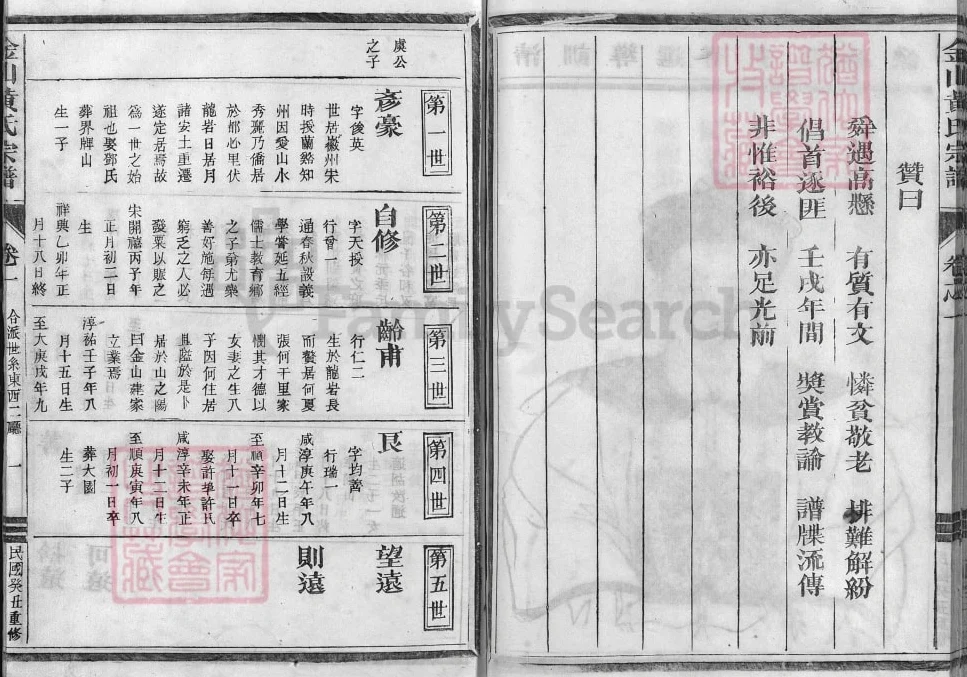 金山黃氏宗譜
卷之一
贊曰
舜遇高懸 有質有文 憐貧敬老 排難解紛
倡首逐匪 壬戌年間 獎賞教諭 譜牒流傳
非惟裕後 亦足光前
虞公
之子
第一世
彥豪
字俊英
世居徽州宋
時授蘭谿知
州因愛山水
秀麗乃僑居
於邰心里伏
龍岩日居月
諸安土重遷
遂定居焉故
為一世之始
祖也娶鄧氏
葬界牌山
生一子
第二世
自修
字天授
行曾一
通春秋設義
學嘗延五經
儒士教育鄉
之子弟尤樂
善好施每遇
窮乏之人必
發粟以賑之
宋開禧丙子年
正月初二日
生
祥興乙卯年正
月十八日終
第三世
齡甫
行仁二
生於龍岩長
而賢居何夏
張何千里家
懷其才德以
女妻之生八
子因何住居
隘於是卜
居於山之陽
曰金山肇家
立業焉
淳祐壬子年八
月十五日生
至大庚戌年九
第四世
艮
字均齊
行瑞一
咸淳庚午年八
月十二日生
至順辛卯年七
月十一日卒
娶許氏
咸淳辛未年正
月十二日生
至順庚寅年八
月初一日卒
葬大園
生二子
第五世
望遠
則遠
金山黃氏宗譜
卷一
合派世系東西二廳
一
民國癸丑重修
FamilySearch